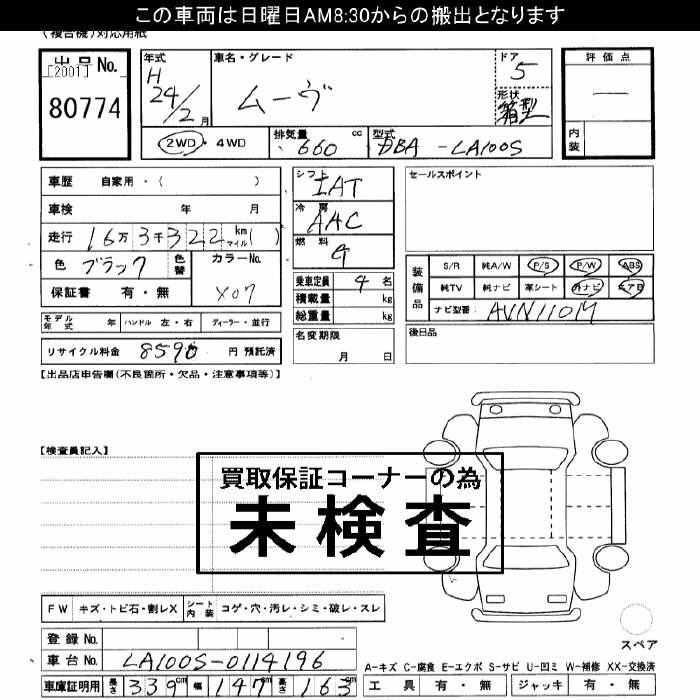 この車両は日曜日AM8:30からの搬出となります
(複合機)対応用紙
出品No.
[2001]
80774
年式
H
24/2月
車名・グレード
ムーヴ
ドア
5
形状
箱型
評価点
—
内装
2WD・4WD
排気量
660 cc
型式
DBA-LA100S
車歴 自家用・( )
車検 年 月
走行 16万3千322 km マイル( )
色 ブラック
色替
カラーNo.
X07
保証書 有・無
モデル年式 年
ハンドル 左・右
ディーラー・並行
リサイクル料金 8590 円 預託済
シフト
IAT
冷房
AAC
燃料
G
乗車定員 4名
積載量 kg
総重量 kg
名変期限
月 日
セールスポイント
装備品
S/R 純A/W P/S P/W ABS
純TV 純ナビ 革シート 外ナビ エアB
ナビ型番: AVN110M
後日品
【出品店申告欄(不良箇所・欠品・注意事項等)】
【検査員記入】
買取保証コーナーの為
未検査
FW キズ・トビ石・割レX
シート内装 コゲ・穴・汚レ・シミ・破レ・スレ
登録No.
車台No. LA100S-0114196
車庫証明用 長さ 339cm 幅 147cm 高さ 163cm
スペア
A-キズ C-腐食 E-エクボ S-サビ U-凹ミ W-補修 XX-交換済
工具 有・無 ジャッキ 有・無